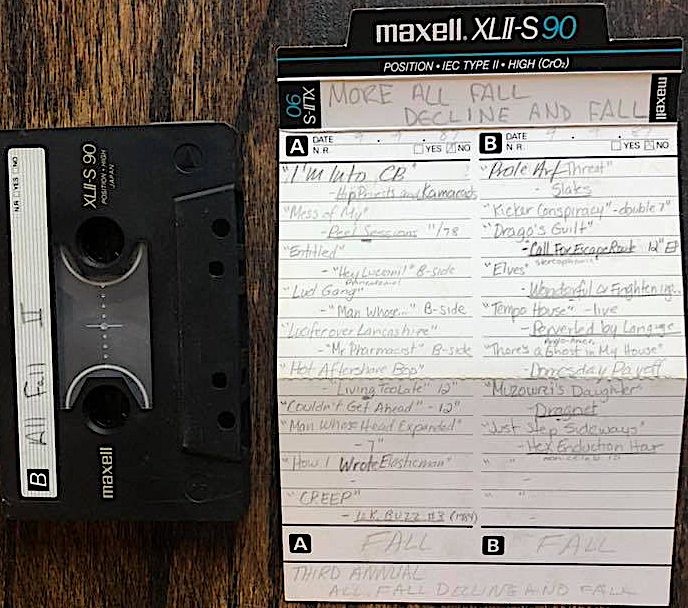 maxell. XLII-S 90
POSITION • IEC TYPE II • HIGH (CrO₂)
XLII-S 90
MORE ALL FALL
DECLINE AND FALL
maxell
A DATE 9 . 9 . 87
N.R. YES NO
"I'm Into CB"
- Hip Priests and Kamerads
"Mess of My"
- Peel Sessions 11/78
"Entitled"
- "Hey Luciani" B-side
"Lud Gang"
- "Man Whose..." B-side
"Lucifer over Lancashire"
- "Mr Pharmacist" B-side
"Hot Aftershave Bop"
- "Living Too Late" 12"
"Couldn't Get Ahead" - 12"
"Man Whose Head Expanded"
- 7"
"How I Wrote Elasticman"
-
"CREEP"
- U.K. BUZZ #3
B DATE 9 . 9 . 87
N.R. YES NO
"Prole Art Threat"
- Slates
"Kicker Conspiracy" - double 7"
"Drago's Guilt"
- Call For Escape Route 12" EP
"Elves"
- Wonderful & Frightening..
"Tempo House" - live
- Perverted by Language
"There's a Ghost in My House"
- Domesday Payoff
"Muzowri's Daughter"
- Dragnet
"Just Step Sideways"
- Hex Enduction Hour
" "
-
" "
-
A FALL
B FALL
THIRD ANNUAL
ALL FALL DECLINE AND FALL
B All Fall II
N.R. YES NO
XLII-S 90
POSITION • HIGH
JAPAN
maxell